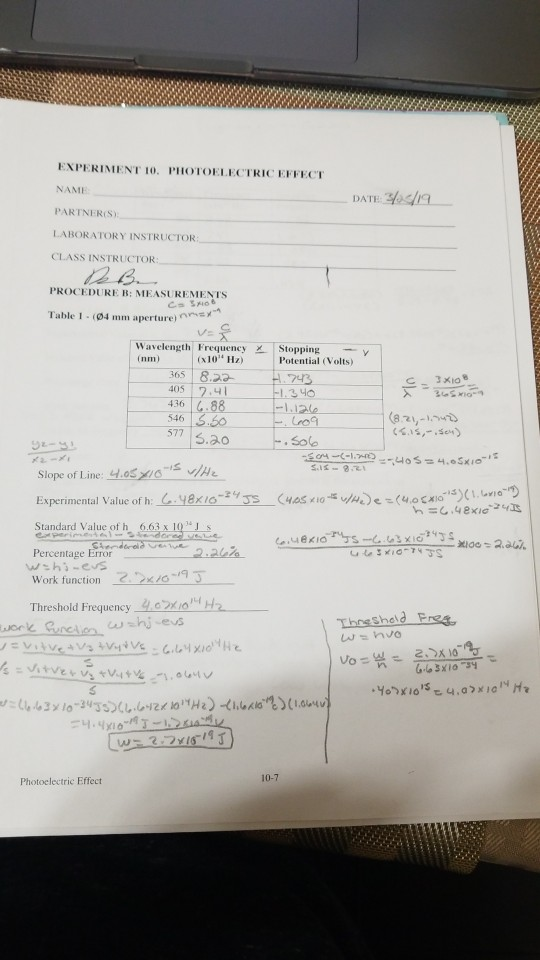 EXPERIMENT 10. PHOTOELECTRIC EFFECT
NAME:
DATE 3/25/19
PARTNER(S):
LABORATORY INSTRUCTOR:
CLASS INSTRUCTOR:
PROCEDURE B: MEASUREMENTS
c = 3x10⁸
Table 1 - (Ø4 mm aperture)
V = c/λ
Wavelength (nm) Frequency (x10¹⁴ Hz) x Stopping Potential (Volts) – y
365 8.22 -1.743
405 7.41 -1.340
436 6.88 -1.126
546 5.50 -.609
577 5.20 -.506
c/λ = 3x10⁸/365x10⁻⁹ =
(8.21, -1.742)
(5.15, -.504)
y2-y1/x2-x1
-.504-(-1.742)/5.15-8.21 = -.405 = 4.05x10⁻¹⁵
Slope of Line: 4.05x10⁻¹⁵ V/Hz
Experimental Value of h: 6.48x10⁻³⁴ JS (4.05x10⁻¹⁵ V/Hz)e = (4.05x10⁻¹⁵)(1.6x10⁻¹⁹)
h = 6.48x10⁻³⁴ JS
Standard Value of h 6.63 x 10⁻³⁴ J s
experimental - standard value
Standard value
Percentage Error 2.26%
6.48x10⁻³⁴JS-6.63x10⁻³⁴JS/6.63x10⁻³⁴JS x100 = 2.26%
w=hj-evs
Work function 2.7x10⁻¹⁹ J
Threshold Frequency 4.07x10¹⁴ Hz
work function w=hj-evs
V = V1+V2+V3+V4+V5/5 = 6.64x10¹⁴ Hz
Vs = V1+V2+V3+V4+V5/5 = 1.064V
w=(6.63x10⁻³⁴JS)(6.642x10¹⁴Hz) - (1.6x10⁻¹⁹C)(1.064V)
= 4.4x10⁻¹⁹J - 1.7x10⁻¹⁹V
w = 2.7x10⁻¹⁹J
Threshold Freq
w = hvo
Vo = w/h = 2.7x10⁻¹⁹J/6.63x10⁻³⁴ =
.407x10¹⁵ = 4.07x10¹⁴ Hz
Photoelectric Effect
10-7